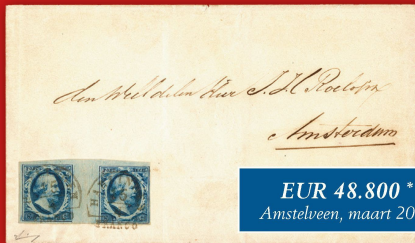 den Weledelen Heer J. H. Roelofs
Amsterdam
FRANCO
EUR 48.800 *
Amstelveen, maart 20